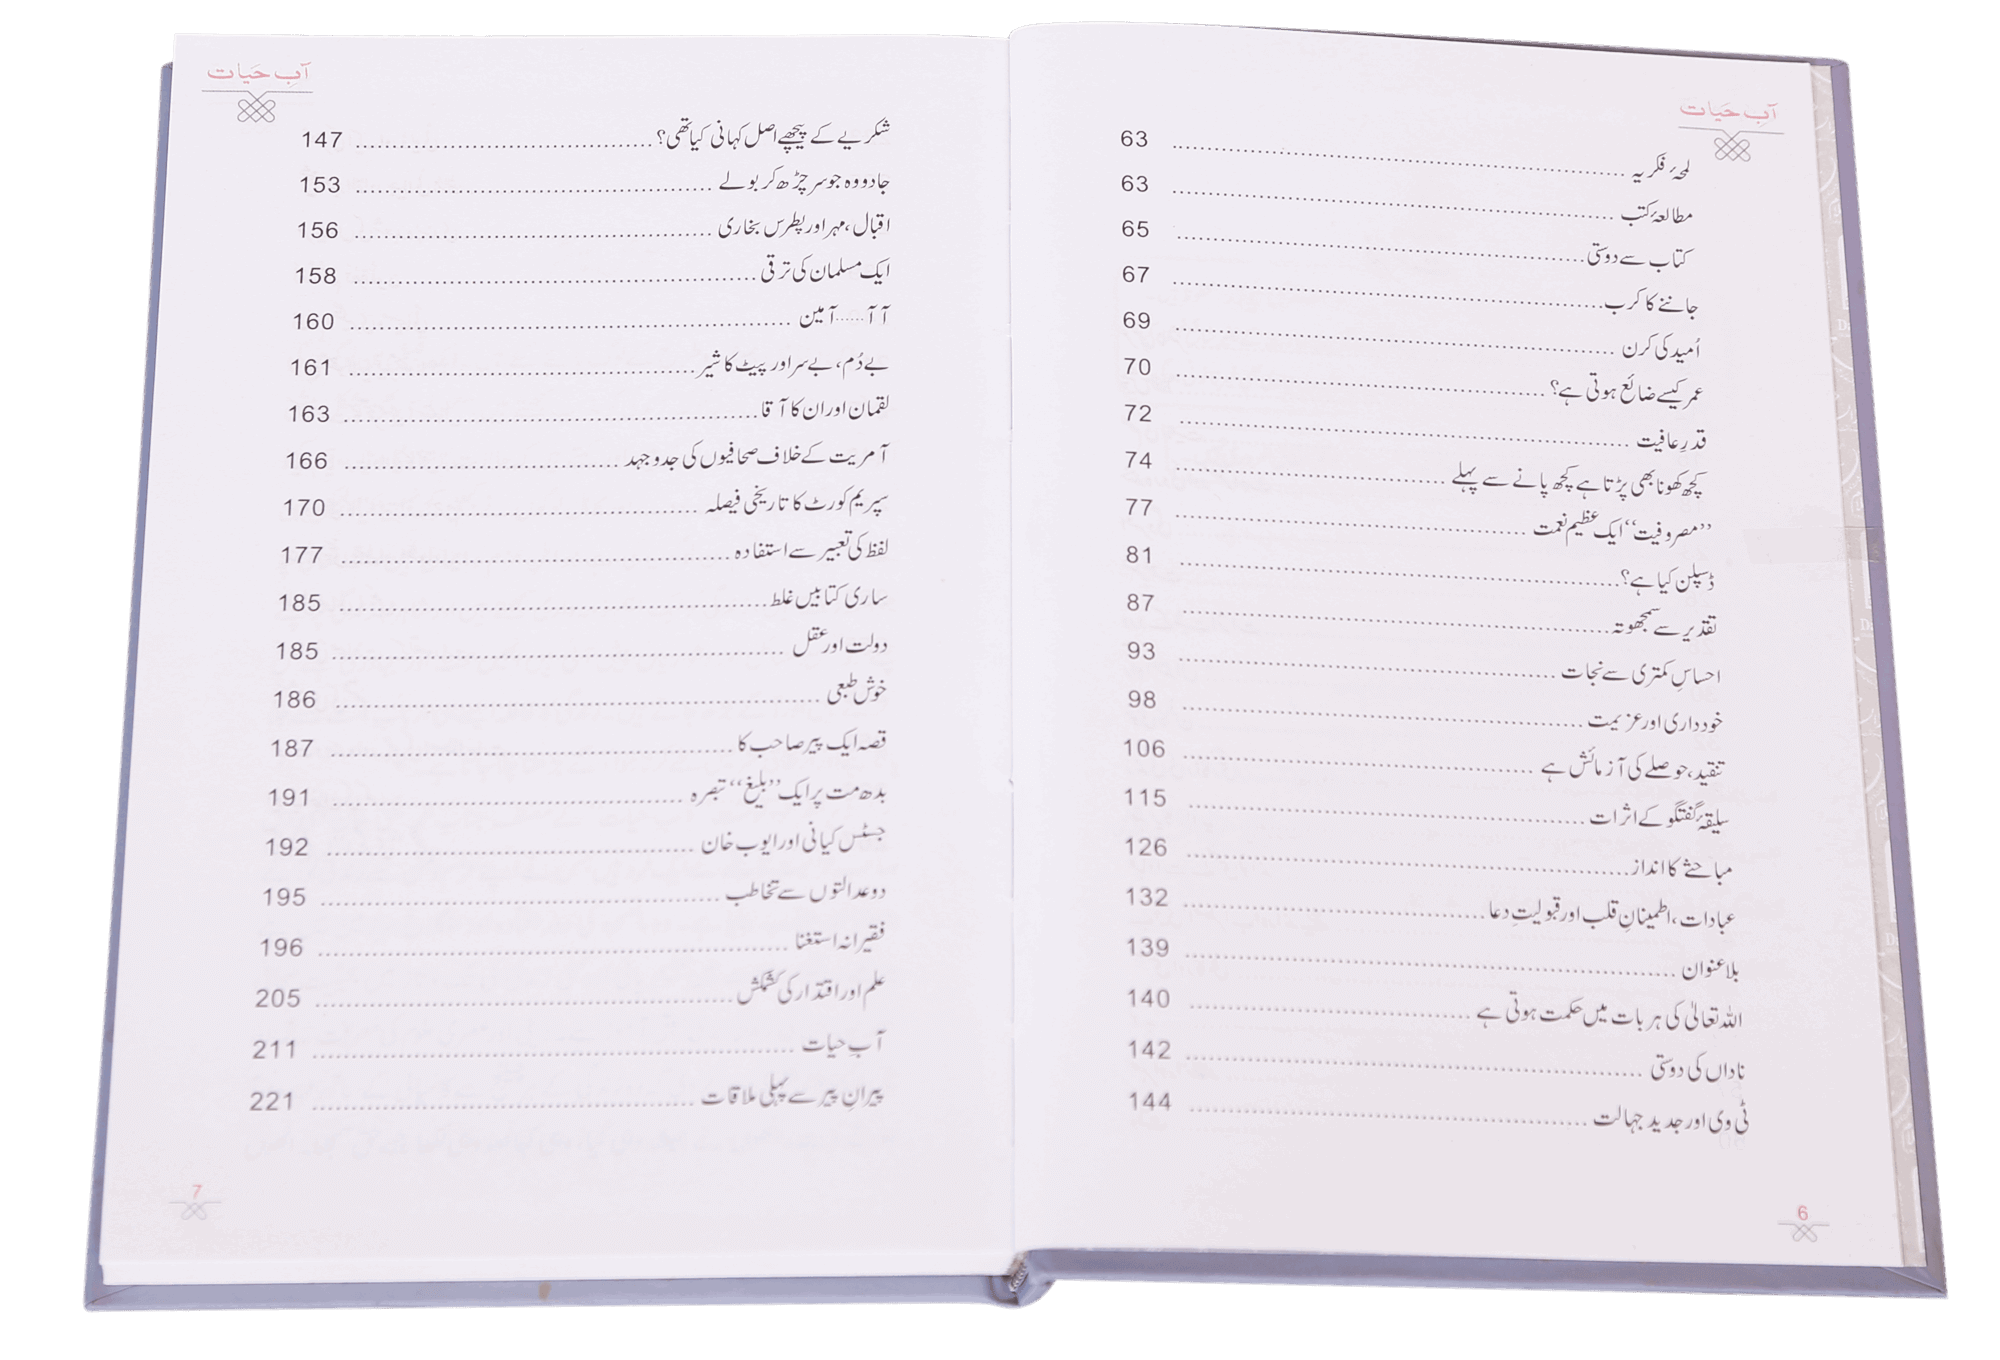 آبِ حیات
لمحۂ فکریہ ........ 63
مطالعۂ کتب ........ 63
کتاب سے دوستی ........ 65
جاننے کا کرب ........ 67
اُمید کی کرن ........ 69
عمر کیسے ضائع ہوتی ہے؟ ........ 70
قدرِ عافیت ........ 72
کچھ کھونا بھی پڑتا ہے کچھ پانے سے پہلے ........ 74
’’مصروفیت‘‘ ایک عظیم نعمت ........ 77
ڈسپلن کیا ہے؟ ........ 81
تقدیر سے سمجھوتہ ........ 87
احساسِ کمتری سے نجات ........ 93
خودداری اور عزیمت ........ 98
تنقید، حوصلے کی آزمائش ہے ........ 106
سلیقۂ گفتگو کے اثرات ........ 115
مباحثے کا انداز ........ 126
عبادات، اطمینانِ قلب اور قبولیتِ دعا ........ 132
بلاعنوان ........ 139
اللہ تعالیٰ کی ہر بات میں حکمت ہوتی ہے ........ 140
ناداں کی دوستی ........ 142
ٹی وی اور جدید جہالت ........ 144
6
آبِ حیات
شکریے کے پیچھے اصل کہانی کیا تھی؟ ........ 147
جادو وہ جو سر چڑھ کر بولے ........ 153
اقبال، مہر اور پطرس بخاری ........ 156
ایک مسلمان کی ترقی ........ 158
آ آ......آمین ........ 160
بے دُم، بے سر اور پیٹ کا شیر ........ 161
لقمان اور ان کا آقا ........ 163
آمریت کے خلاف صحافیوں کی جدوجہد ........ 166
سپریم کورٹ کا تاریخی فیصلہ ........ 170
لفظ کی تعبیر سے استفادہ ........ 177
ساری کتابیں غلط ........ 185
دولت اور عقل ........ 185
خوش طبعی ........ 186
قصہ ایک پیر صاحب کا ........ 187
بدھ مت پر ایک ’’بلیغ‘‘ تبصرہ ........ 191
جسٹس کیانی اور ایوب خان ........ 192
دو عدالتوں سے تخاطب ........ 195
فقیرانہ استغنا ........ 196
علم اور اقتدار کی کشمکش ........ 205
آبِ حیات ........ 211
پیرانِ پیر سے پہلی ملاقات ........ 221
7